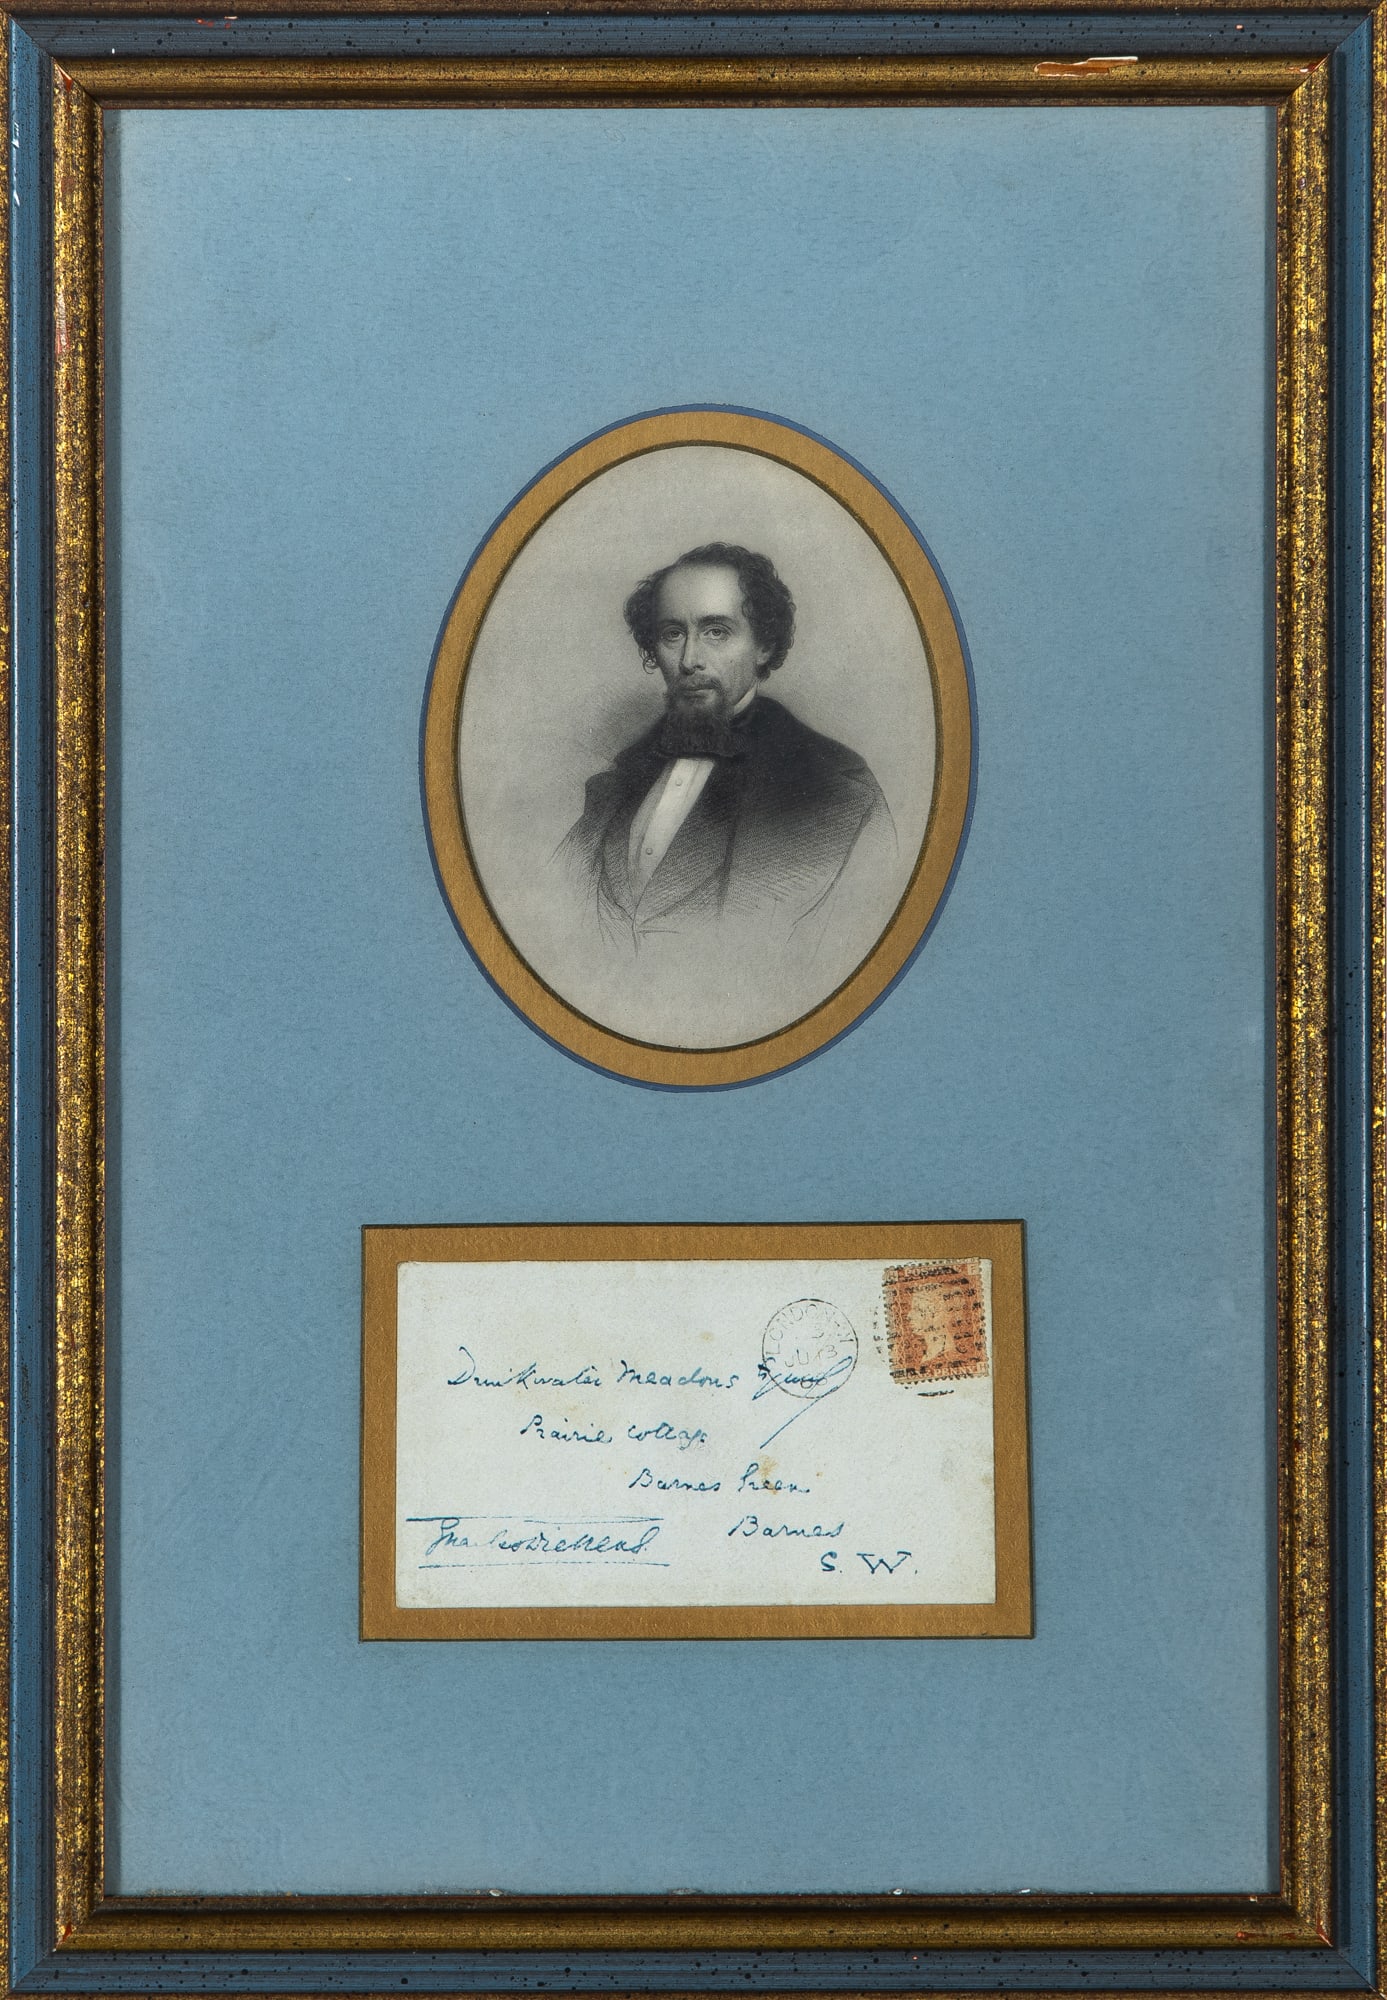 LONDON-W
JU 3
Drinkwater Meadows Esquire
Prairie Cottage
Barnes Green
Barnes
S. W.
Charles Dickens